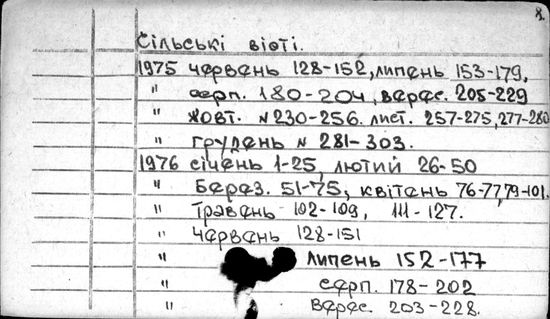 8.
Сільські вісті.
1975 червень 128-152, липень 153-179,
" серп. 180-204, верес. 205-229
" жовт. № 230-256. лист. 257-275, 277-280
" грудень № 281-303.
1976 січень 1-25, лютий 26-50
" Берез. 51-75, квітень 76-77, 79-101.
" Травень 102-109, 111-127.
" Червень 128-151
" Липень 152-177
" серп. 178-202
" Верес. 203-228.